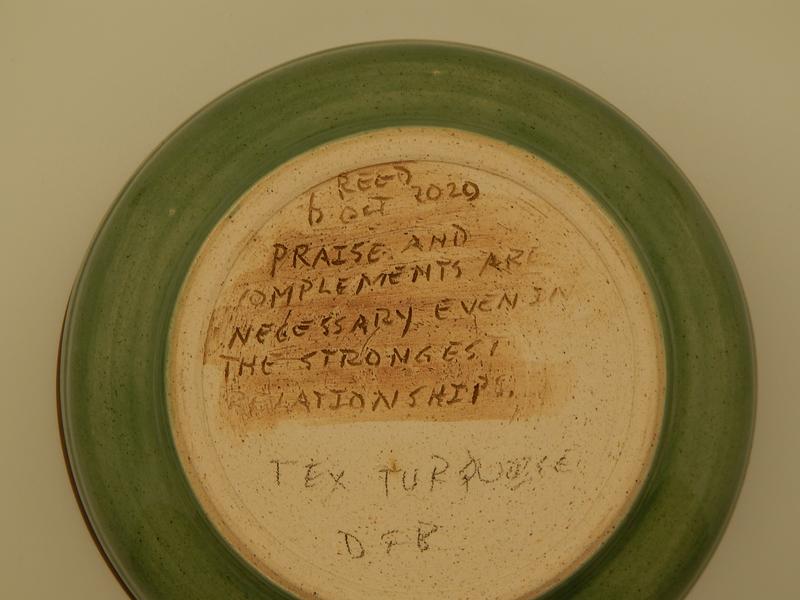 REED
6 OCT 2020
PRAISE AND
COMPLEMENTS ARE
NECESSARY EVEN IN
THE STRONGEST
RELATIONSHIPS.
TEX TURQUOISE
DFB